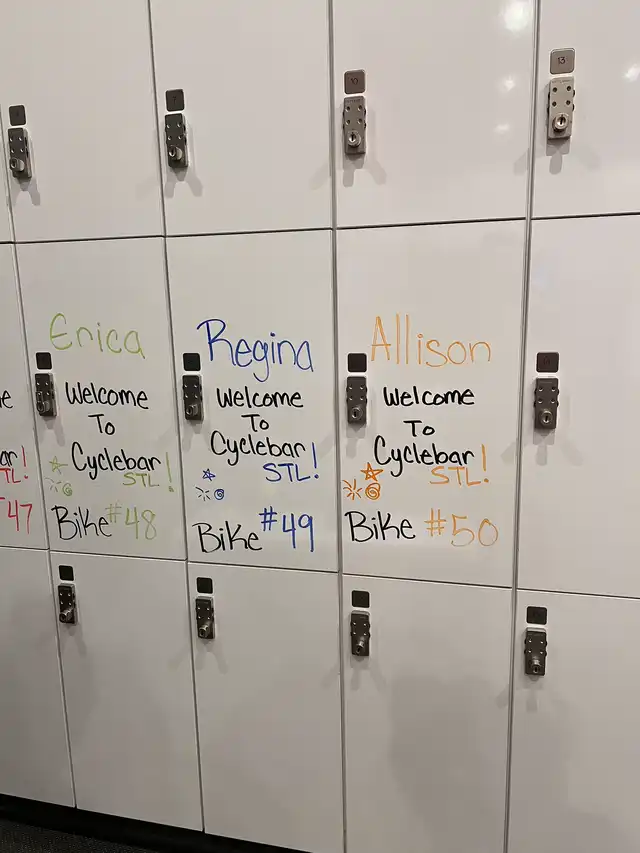 10
13
Erica
Welcome
To
Cyclebar
STL!
Bike #48
Regina
Welcome
To
Cyclebar
STL!
Bike #49
Allison
Welcome
To
Cyclebar
STL!
Bike #50
ar!
TL!
47